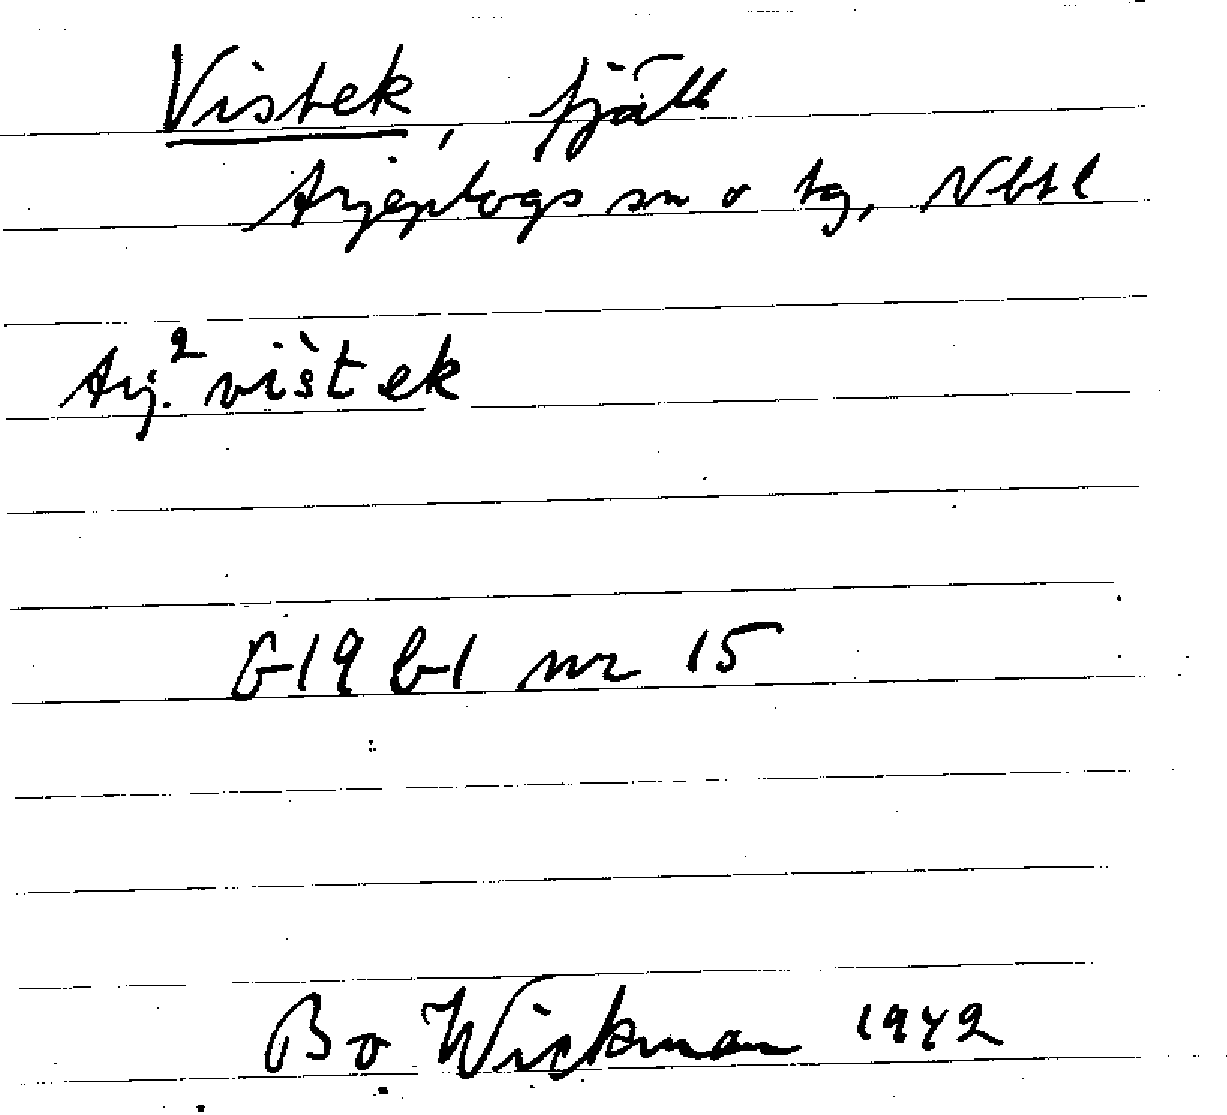 Vistek, fjäll
Arjeplogs sn o tg, Nbtl
Arj.² vìštek
G19 bl nr 15
Bo Wickman 1942